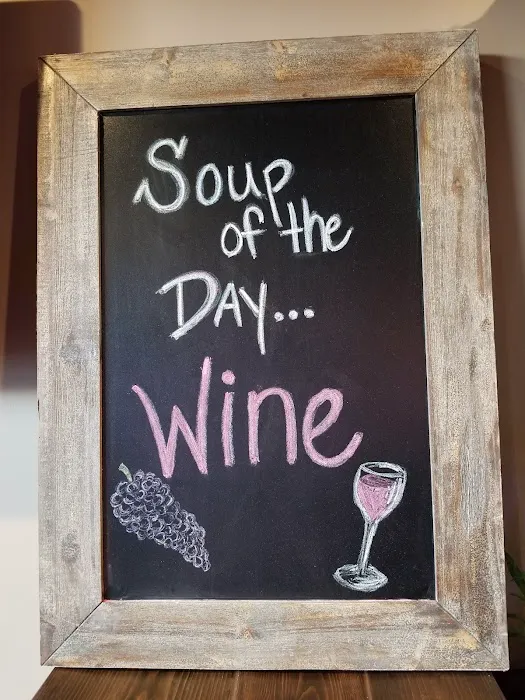 Soup
of the
DAY...
Wine